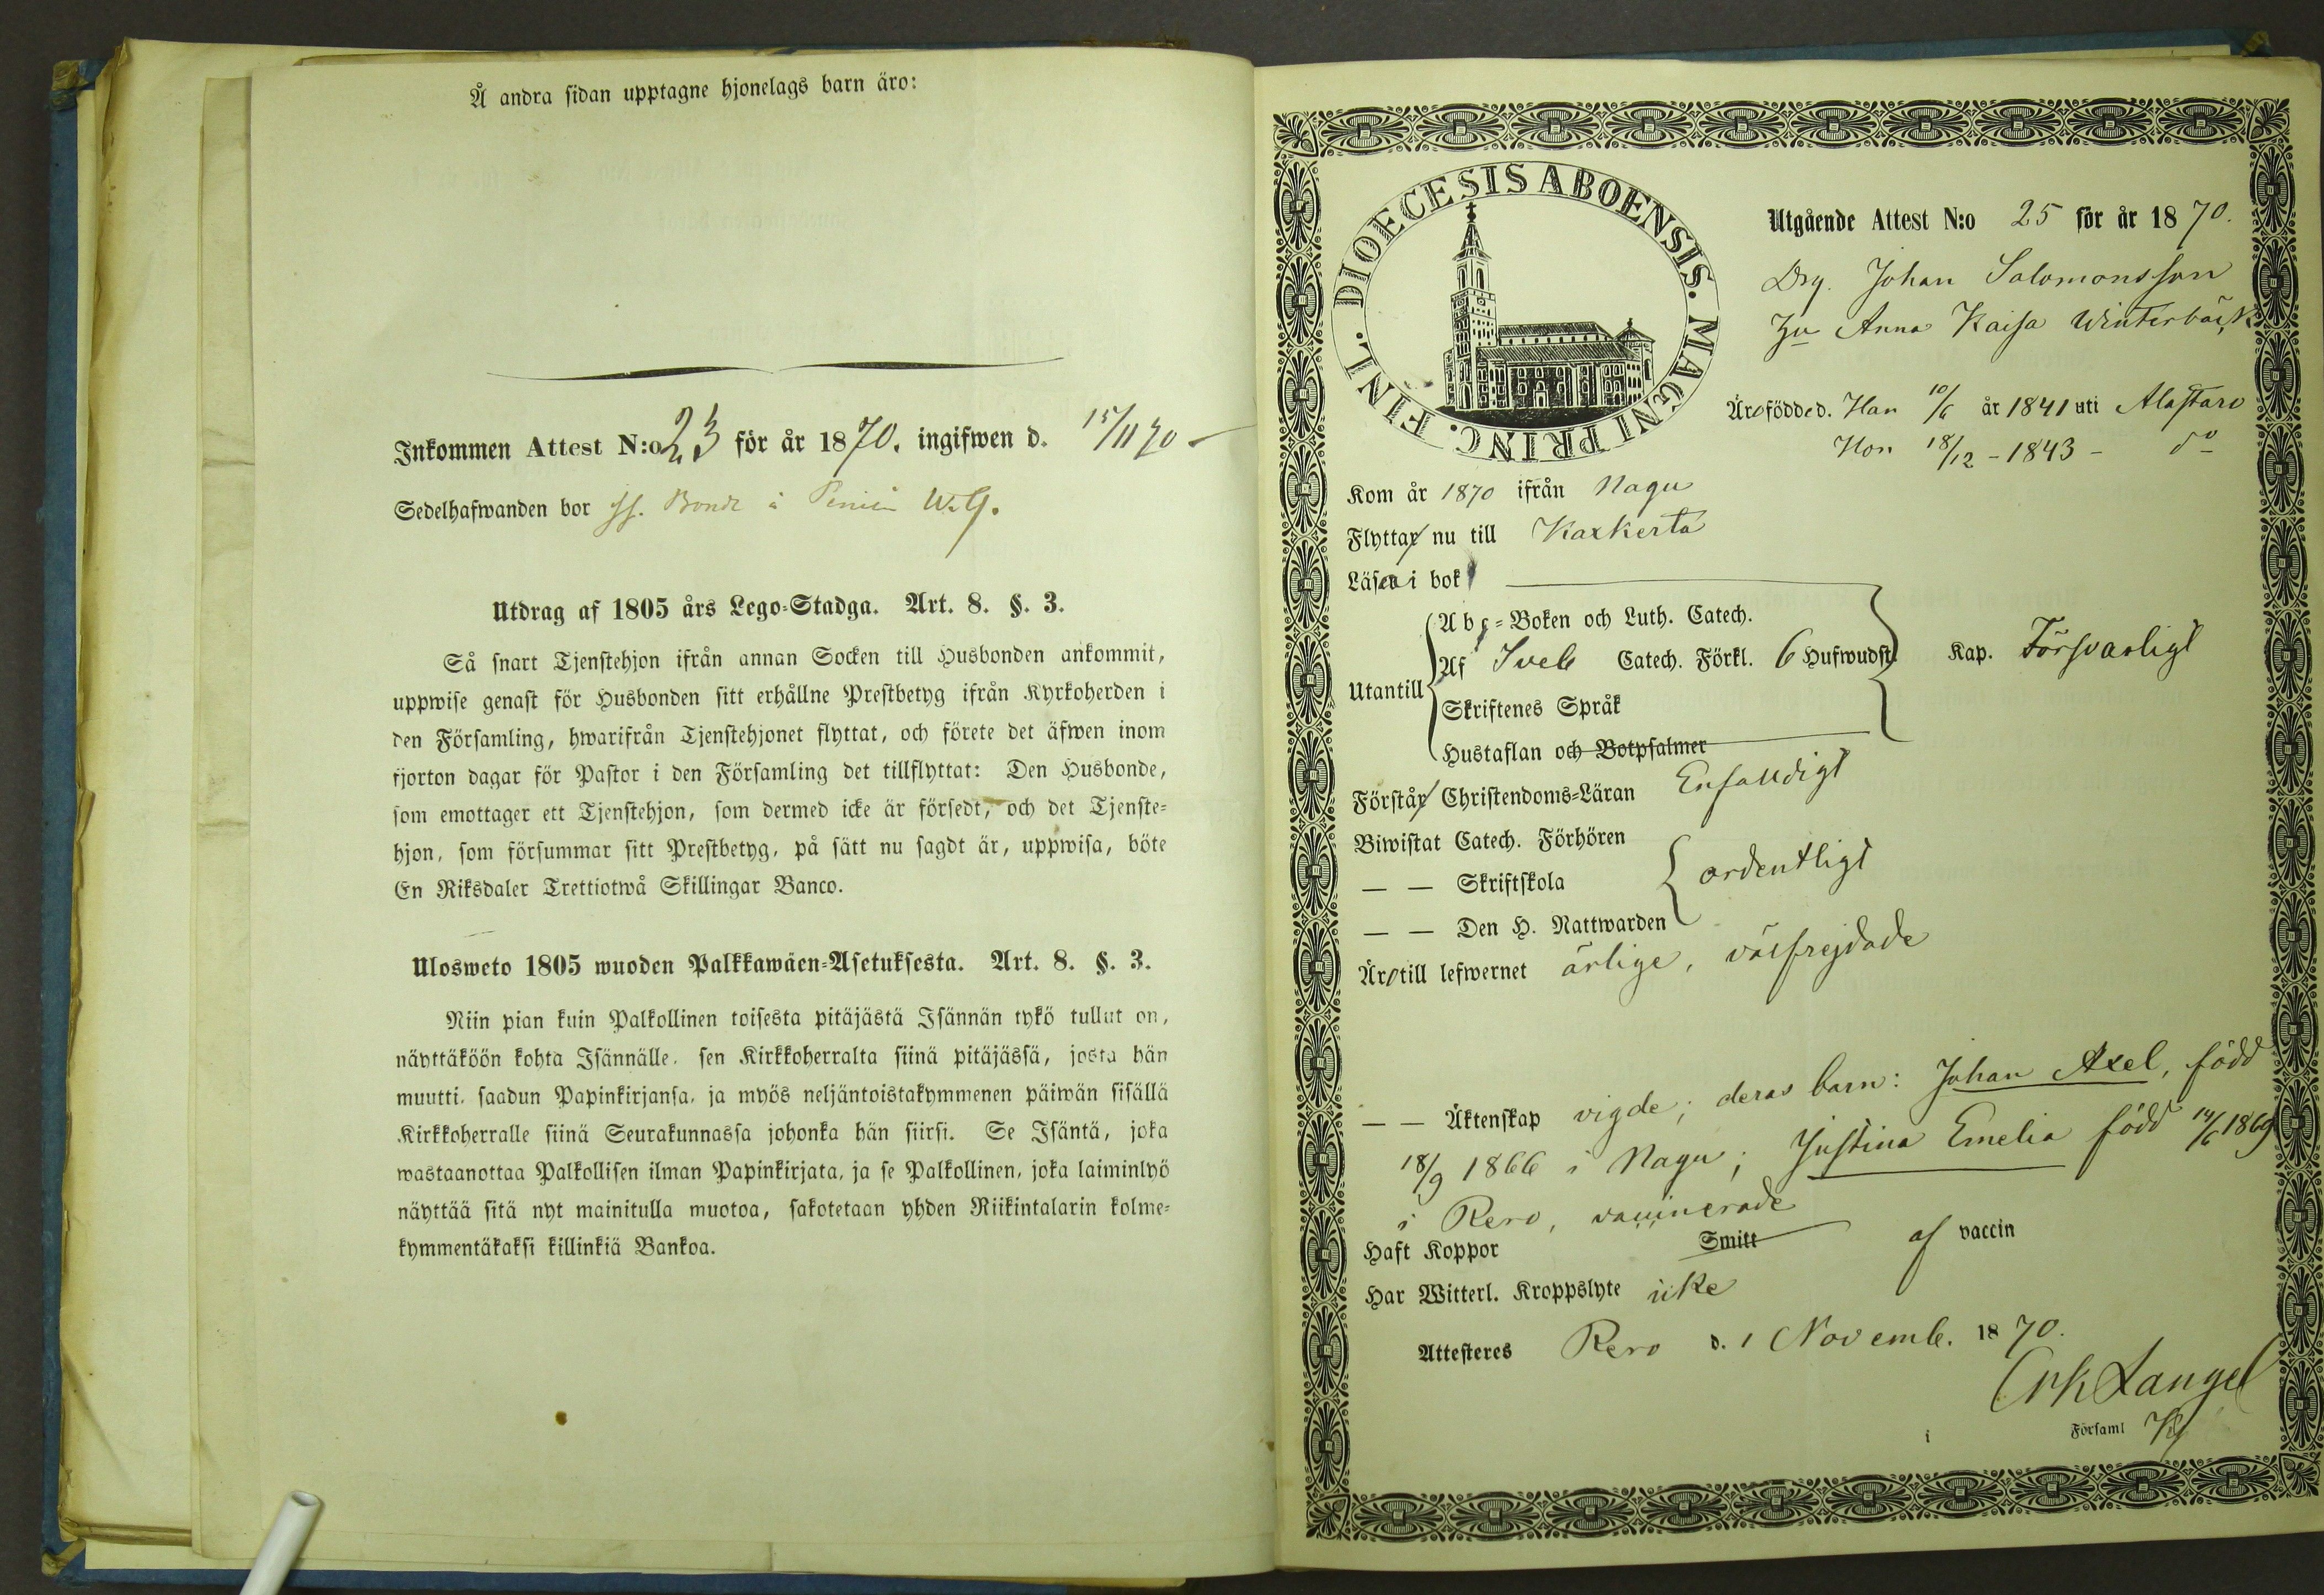 Å andra sidan upptagne hjonelags barn äro:
Inkommen Attest N:o 23 för år 1870. ingifwen d. 15/11 70
Sedelhafwanden bor Bonde å W.G.
Utdrag af 1805 års Lego-Stadga. Art. 8. §. 3.
Så snart Tjenstehjon ifrån annan Socken till Husbonden ankommit,
uppwise genast för Husbonden sitt erhållne Prestbetyg ifrån Kyrkoherden i
den Församling, hwarifrån Tjenstehjonet flyttat, och förete det äfwen inom
fjorton dagar för Pastor i den Församling det tillflyttat: Den Husbonde,
som emottager ett Tjenstehjon, som dermed icke är försedt, och det Tjenste-
hjon, som försummar sitt Prestbetyg, på sätt nu sagdt är, uppwisa, böte
En Riksdaler Trettiotwå Skillingar Banco.
Ulosweto 1805 wuoden Palkkawäen-Asetuksesta. Art. 8. §. 3.
Niin pian kuin Palkollinen toisesta pitäjästä Isännän tykö tullut on,
näyttäköön kohta Isännälle, sen Kirkkoherralta siinä pitäjässä, josta hän
muutti, saadun Papinkirjansa, ja myös neljäntoistakymmenen päiwän sisällä
Kirkkoherralle siinä Seurakunnassa johonka hän siirsi. Se Isäntä, joka
wastaanottaa Palkollisen ilman Papinkirjata, ja se Palkollinen, joka laiminlyö
näyttää sitä nyt mainitulla muotoa, sakotetaan yhden Riikintalarin kolme-
kymmentäkaksi killinkiä Bankoa.
FINL. DIOECESIS ABOENSIS. MAGNI PRINC.
Utgående Attest N:o 25 för år 1870.
Drg. Johan Salomonsson
Hu Anna Kaisa Winterbäck
Äro födde d. Han 10/6 år 1841 uti Alastaro
Hon 18/12 - 1843 - do
Kom år 1870 ifrån Nagu
Flyttar nu till Kaxkerta
Läsa i bok
Abc-Boken och Luth. Catech.
Utantill Af Sveb Catech. Förkl. 6 Hufwudst. Kap. Försvarligt
Skriftenes Språk
Hustaflan och Botpsalmer
Förstår Christendoms-Läran Enfaldigt
Biwistat Catech. Förhören
— — Skriftskola ordentligt
— — Den H. Nattwarden
Äro till lefwernet ärlige, välfrejdade
— — Äktenskap vigde; deras barn: Johan Axel, född
18/9 1866 i Nagu; Justina Emelia född 14/6 1869
i Rero, vaccinerade
Haft Koppor Smitt af vaccin
Har Witterl. Kroppslyte icke
Attesteres Rero d. 1 Novemb. 1870.
Langel
i Församl